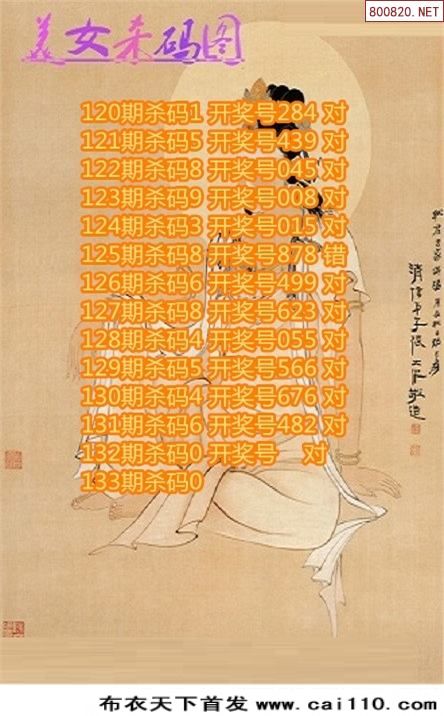 800820.NET
美女杀码图
120期杀码1 开奖号284 对
121期杀码5 开奖号439 对
122期杀码8 开奖号045 对
123期杀码9 开奖号008 对
124期杀码3 开奖号015 对
125期杀码8 开奖号878 错
126期杀码6 开奖号499 对
127期杀码8 开奖号623 对
128期杀码4 开奖号055 对
129期杀码5 开奖号566 对
130期杀码4 开奖号676 对
131期杀码6 开奖号482 对
132期杀码0 开奖号 对
133期杀码0
布衣天下首发 www.cai110.com